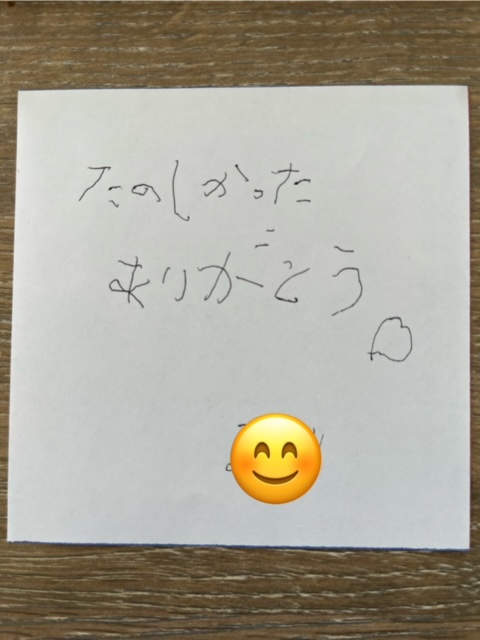 たのしかった
ありがとう